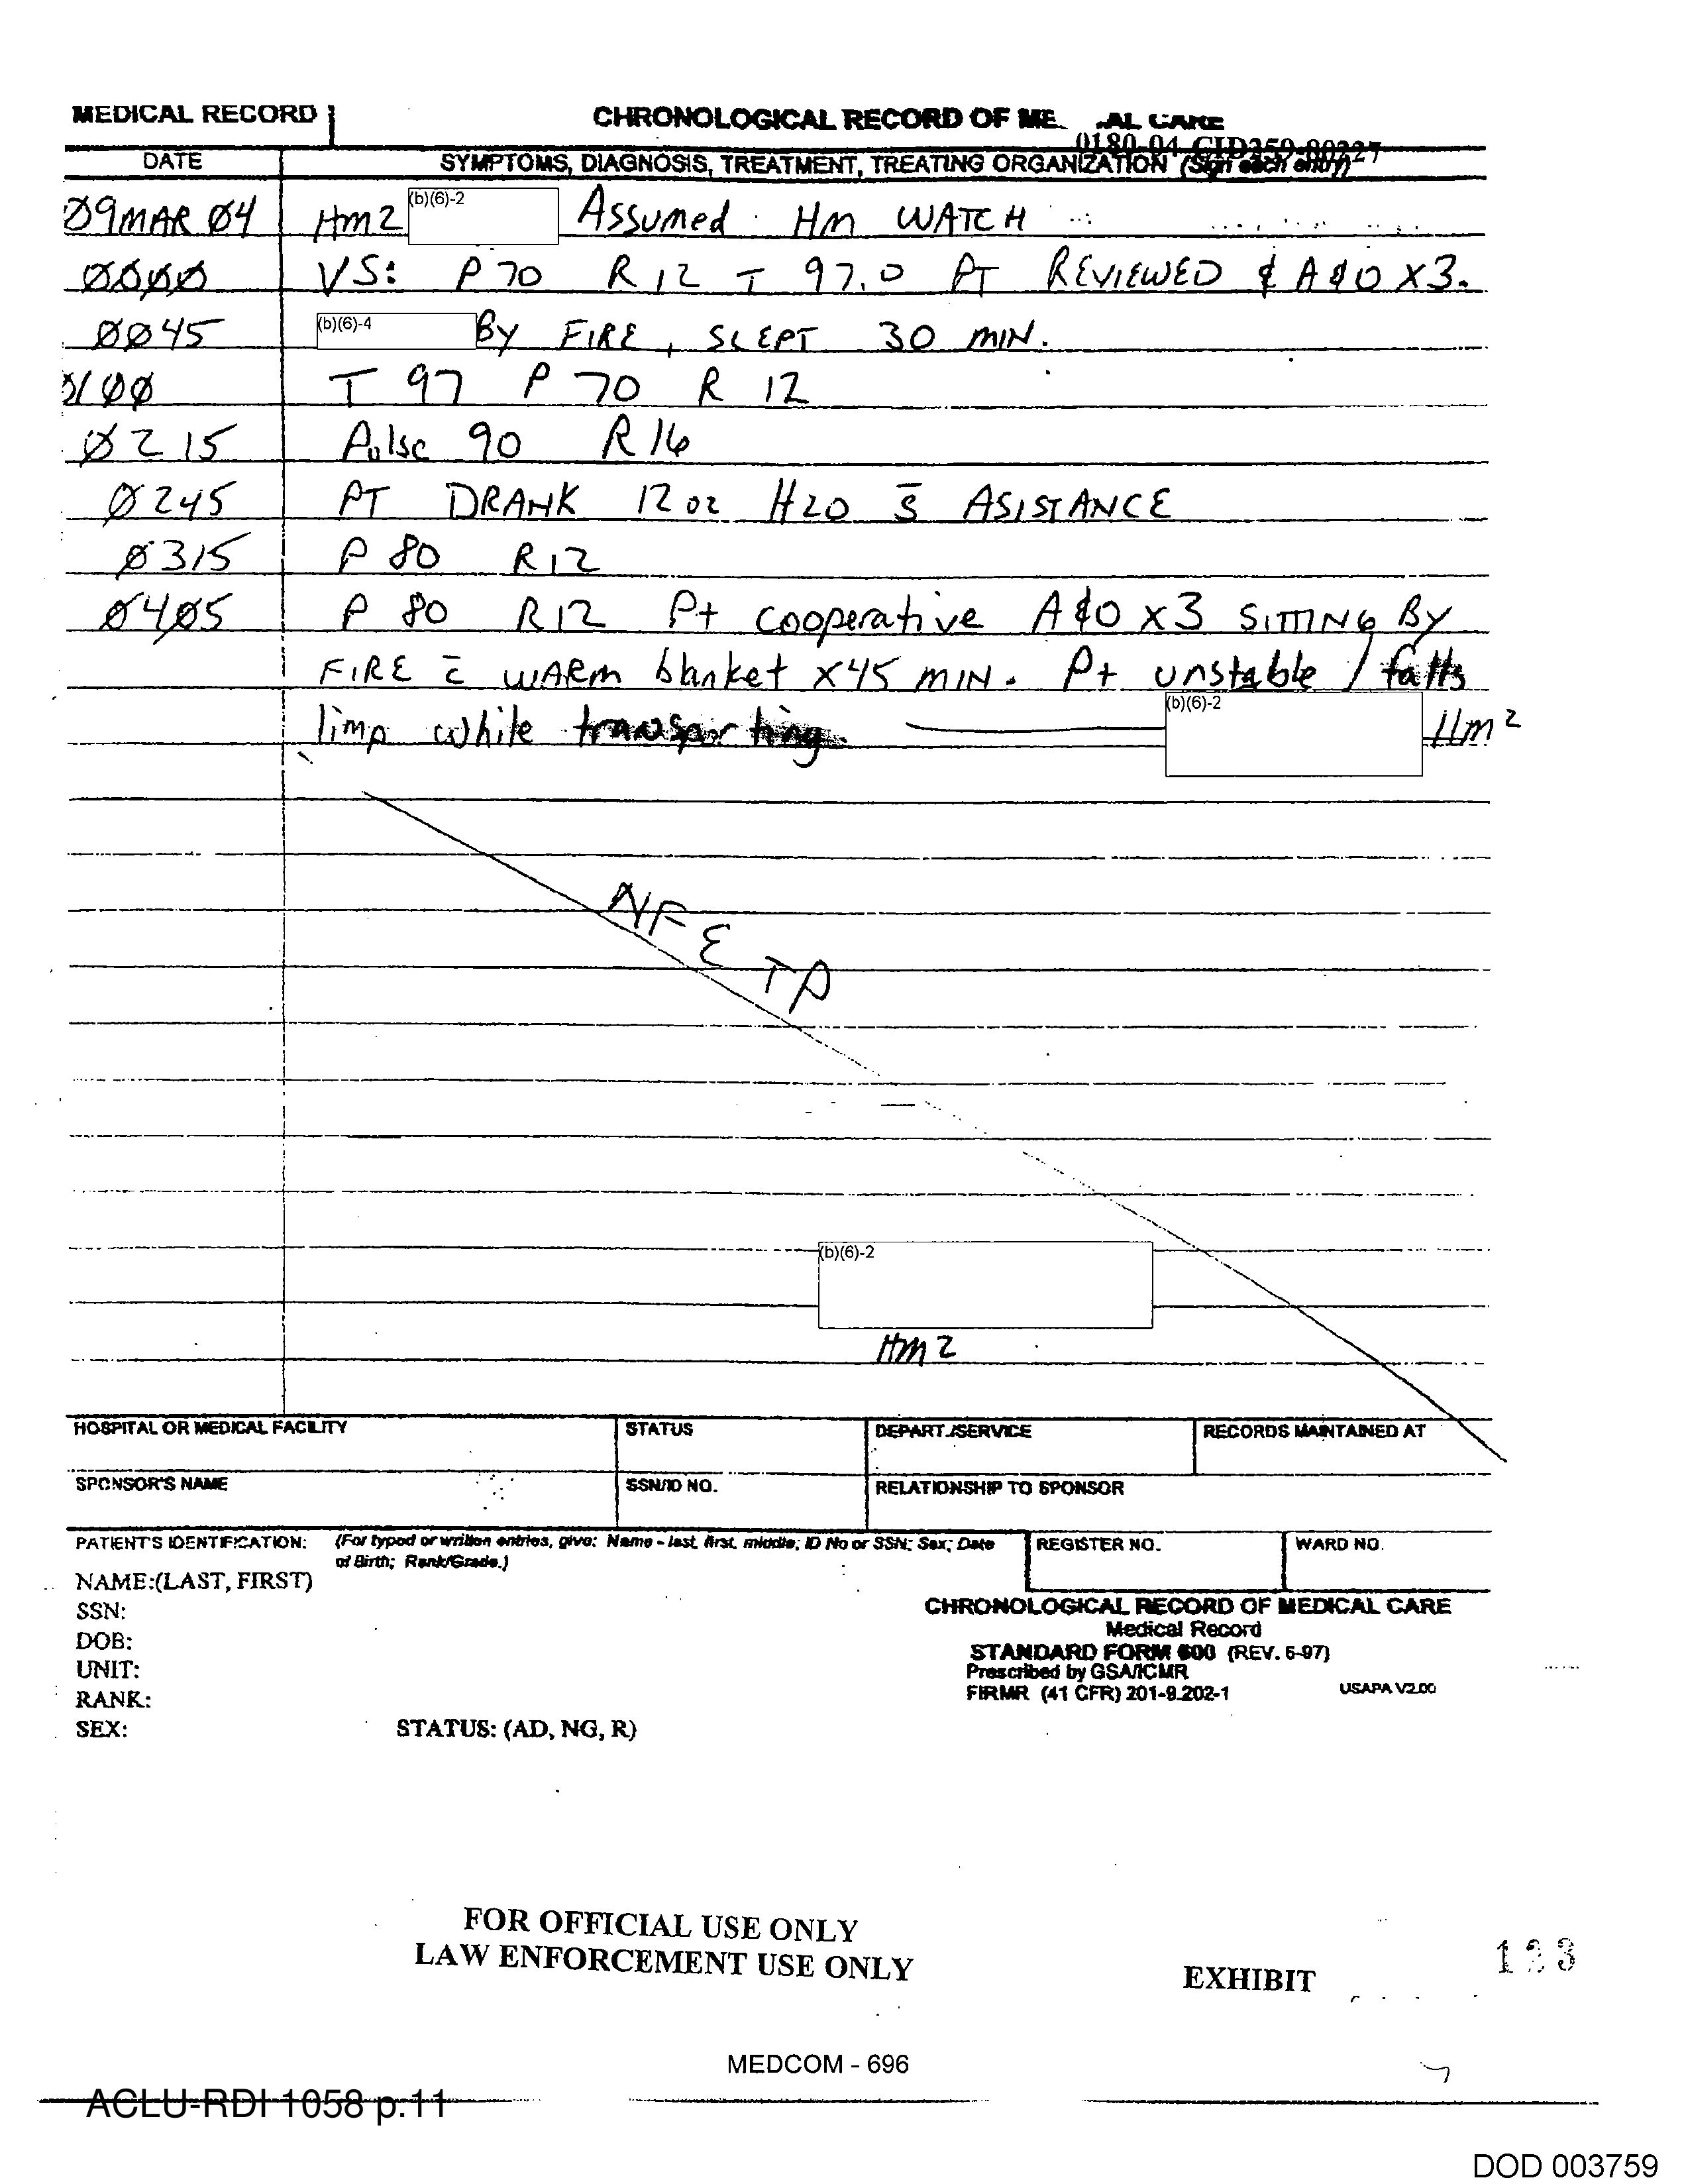 MEDICAL RECORD
CHRONOLOGICAL RECORD OF ME AL CARE
0180-04-CID259-80227
DATE
SYMPTOMS, DIAGNOSIS, TREATMENT, TREATING ORGANIZATION (Sign each entry)
09MAR 04 HM2 (b)(6)-2 Assumed HM WATCH
0000 VS: P 70 R 12 T 97.0 PT REVIEWED & A&O X3.
0045 (b)(6)-4 BY FIRE, SLEPT 30 MIN.
0100 T 97 P 70 R 12
0215 Pulse 90 R 16
0245 PT DRANK 12 oz H2O s̄ ASISTANCE
0315 P 80 R12
0405 P 80 R12 Pt cooperative A&O X3 SITTING BY
FIRE c̄ WARM blanket X45 MIN. Pt unstable / falls
limp while transporting (b)(6)-2 HM2
NFETP
(b)(6)-2
HM2
HOSPITAL OR MEDICAL FACILITY
STATUS
DEPART./SERVICE
RECORDS MAINTAINED AT
SPONSOR'S NAME
SSN/ID NO.
RELATIONSHIP TO SPONSOR
PATIENT'S IDENTIFICATION: (For typed or written entries, give: Name - last, first, middle; ID No or SSN; Sex; Date
of Birth; Rank/Grade.)
REGISTER NO.
WARD NO.
NAME:(LAST, FIRST)
SSN:
DOB:
UNIT:
RANK:
SEX:
STATUS: (AD, NG, R)
CHRONOLOGICAL RECORD OF MEDICAL CARE
Medical Record
STANDARD FORM 600 (REV. 6-97)
Prescribed by GSA/ICMR
FIRMR (41 CFR) 201-9.202-1
USAPA V2.00
FOR OFFICIAL USE ONLY
LAW ENFORCEMENT USE ONLY
EXHIBIT
MEDCOM - 696
ACLU-RDI 1058 p.11
DOD 003759